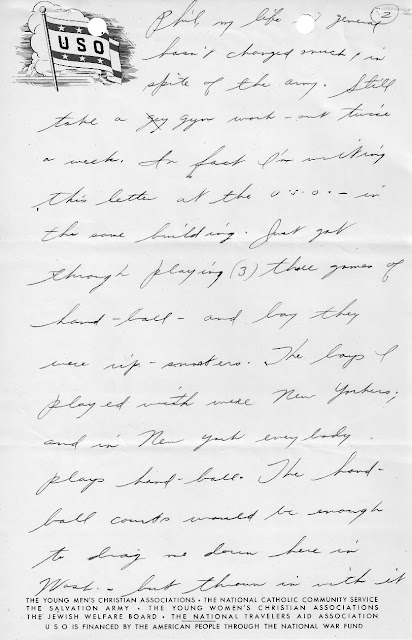 USO
2
Phil, my life in general
hasn't changed much, in
spite of the army. Still
take a gym work-out twice
a week. In fact I'm writing
this letter at the U.S.O. - in
the same building. Just got
through playing (3) three games of
hand-ball - and boy they
were rip-snorters. The boys I
played with were New Yorkers,
and in New York everybody
plays hand-ball. The hand-
ball courts would be enough
to drag me down here in
Wash. - but thrown in with it
THE YOUNG MEN'S CHRISTIAN ASSOCIATIONS • THE NATIONAL CATHOLIC COMMUNITY SERVICE
THE SALVATION ARMY • THE YOUNG WOMEN'S CHRISTIAN ASSOCIATIONS
THE JEWISH WELFARE BOARD • THE NATIONAL TRAVELERS AID ASSOCIATION
U S O IS FINANCED BY THE AMERICAN PEOPLE THROUGH THE NATIONAL WAR FUND